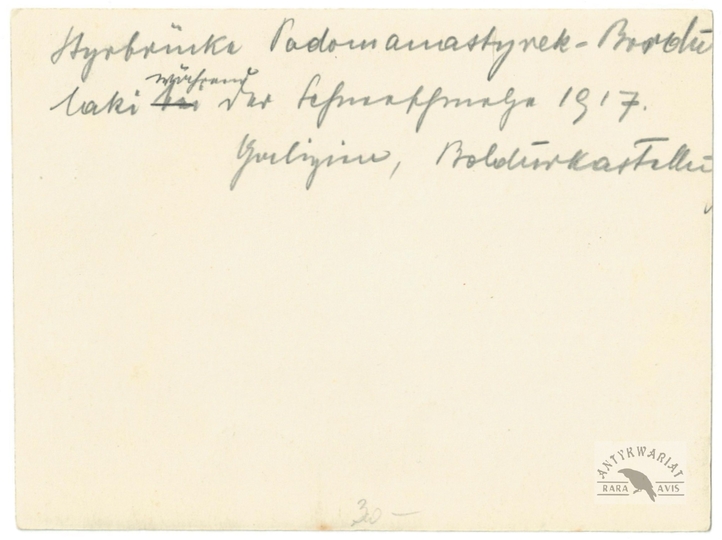 Styrbrücke Podomanastyrek-Bordu
während
laki bei der Schneeschmelze 1917.
Galizien, Boldurkastellu
30-
ANTYKWARIAT
RARA AVIS